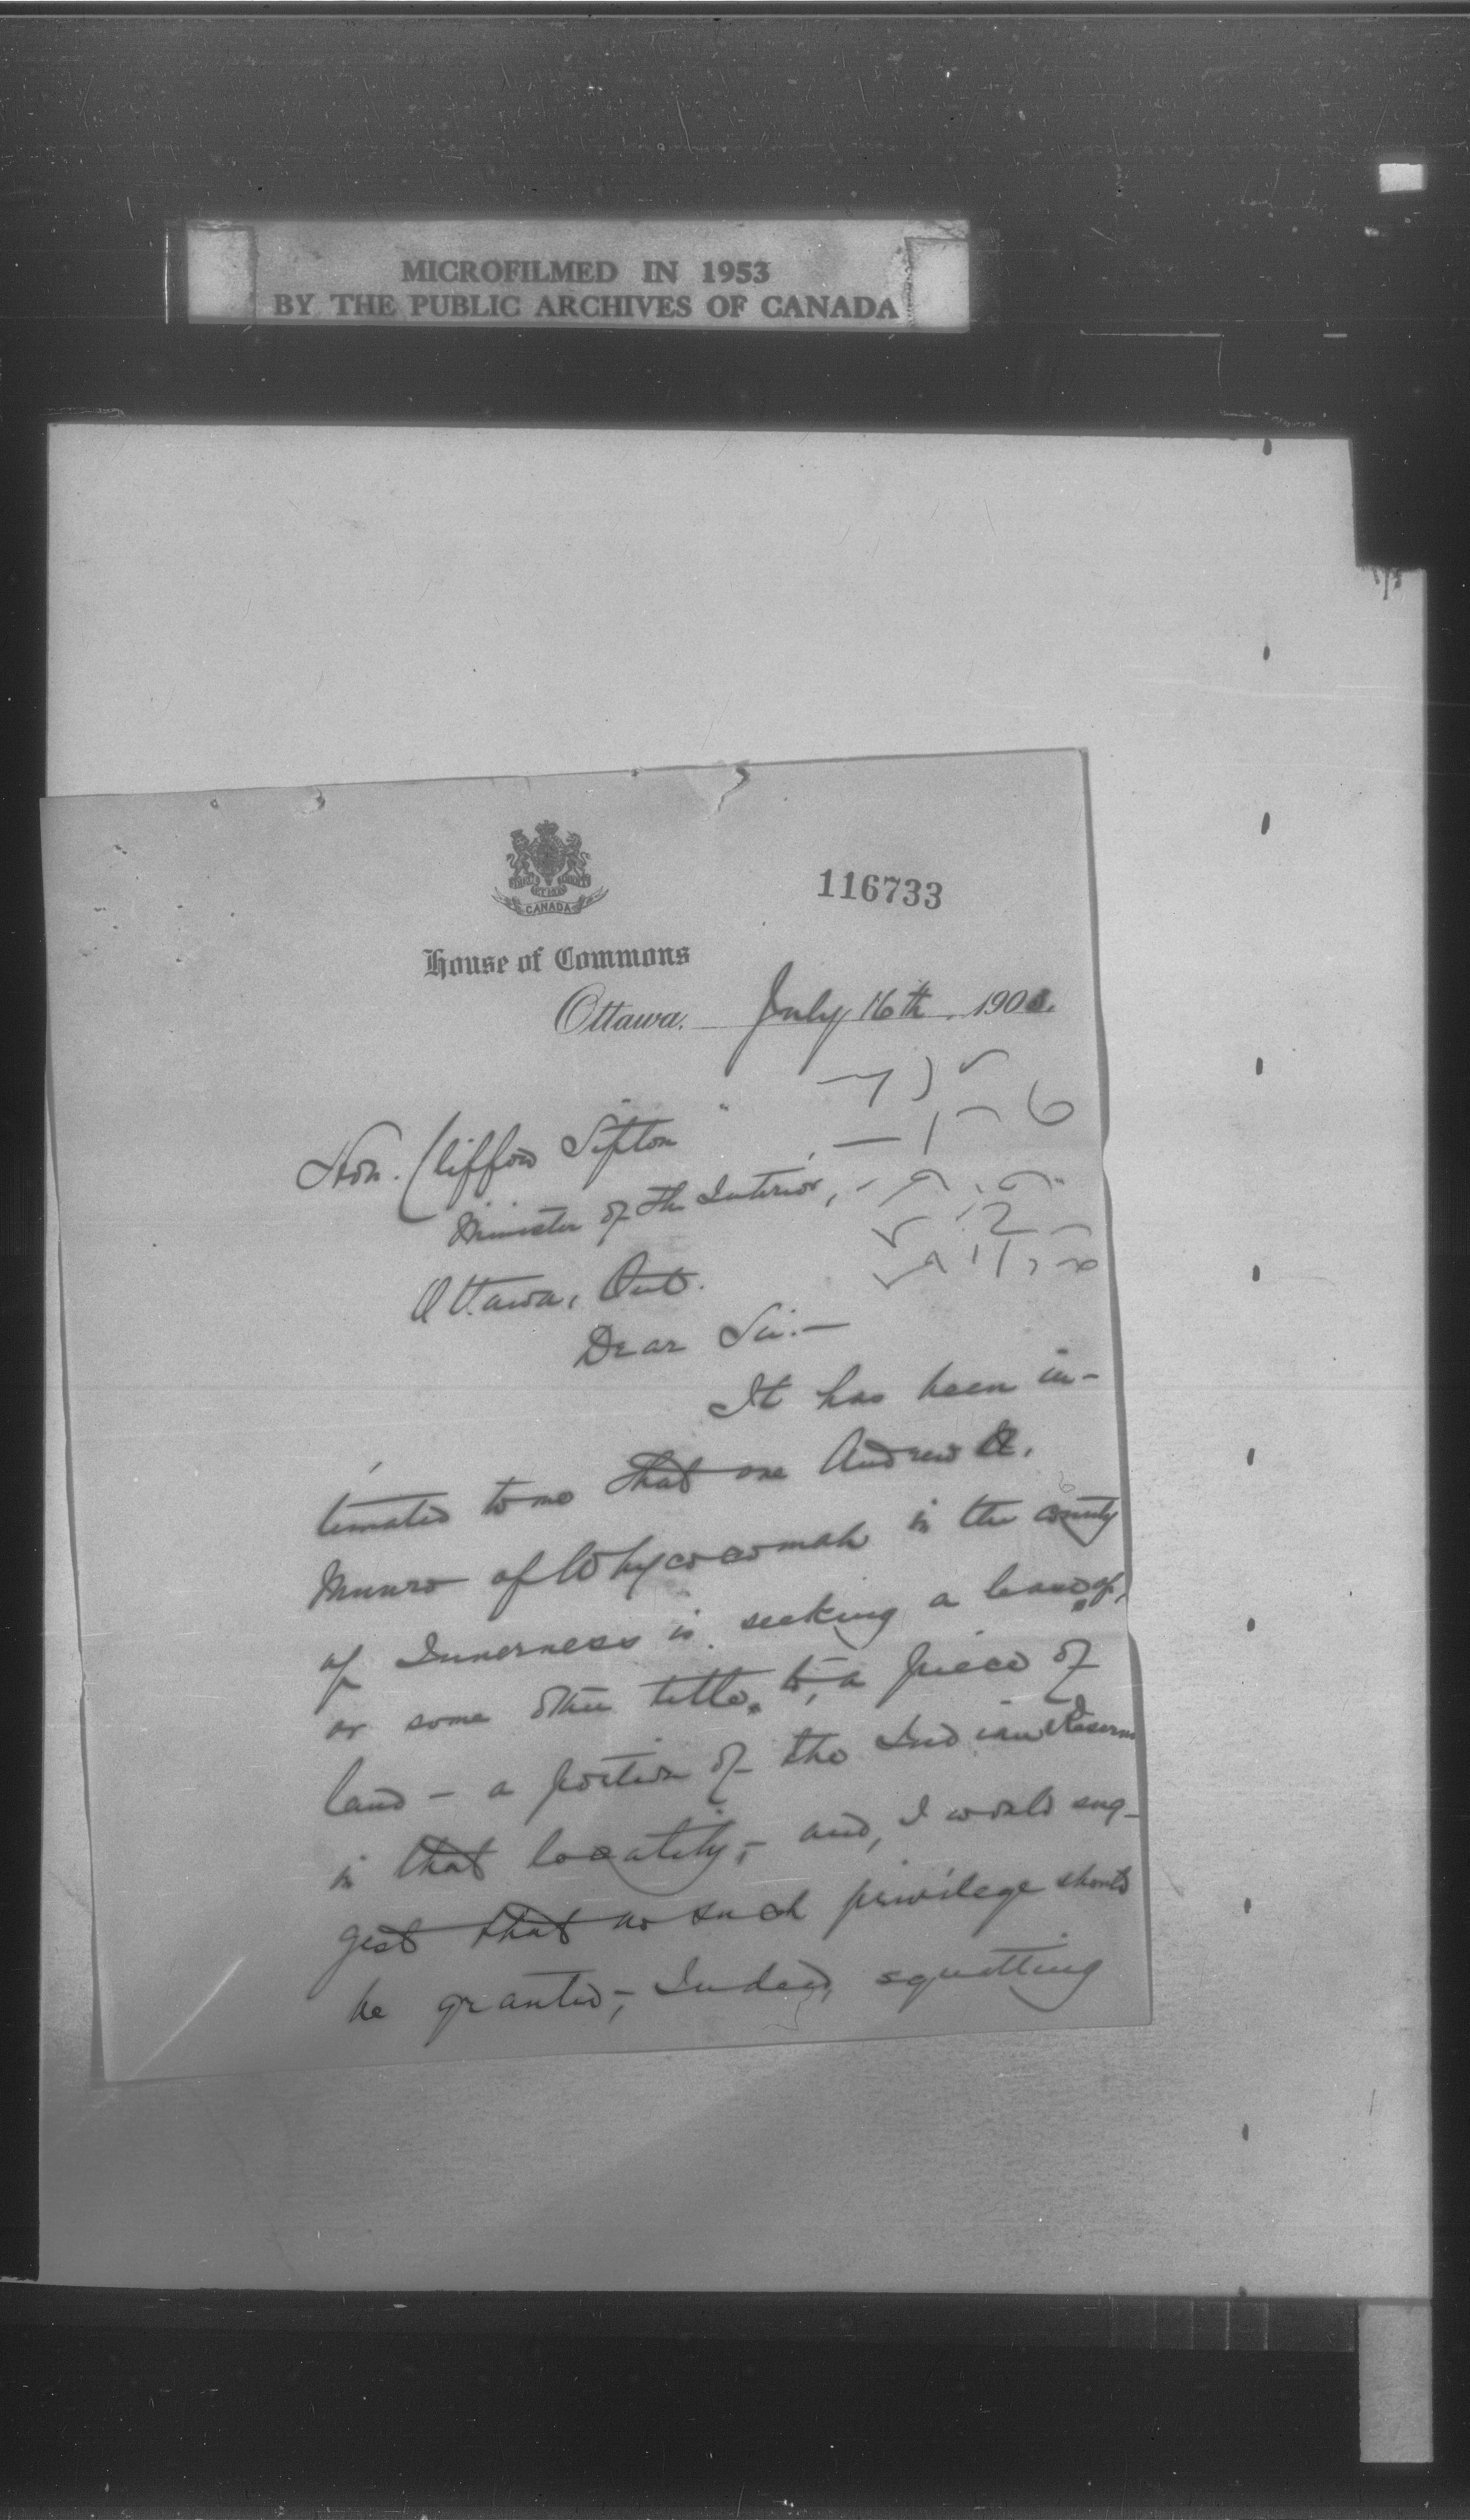 MICROFILMED IN 1953
BY THE PUBLIC ARCHIVES OF CANADA
CANADA
116733
House of Commons
Ottawa, July 16th, 190
Hon. Clifford Sifton
Minister of the Interior,
Ottawa, Ont.
Dear Sir:—
It has been in-
timated to me that one Andrew
Munro of Whycocomah in the county
of Inverness is seeking a lease of,
or some other title, to, a piece of
land - a portion of the Indian Reserve
in that locality, - and, I would sug-
gest that no such privilege should
be granted, - Indeed, squatting